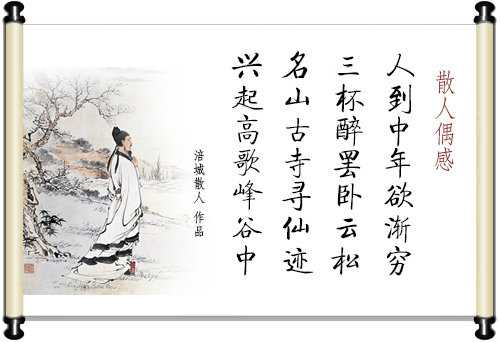 散人偶感
人到中年欲渐穷
三杯醉罢卧云松
名山古寺寻仙迹
兴起高歌峰谷中
涪城散人 作品